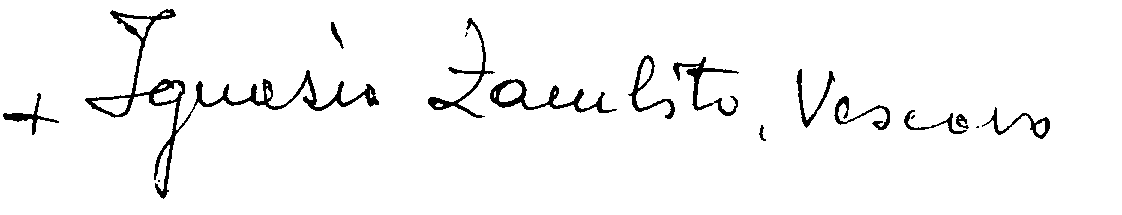 + Ignazio Zambito, Vescovo